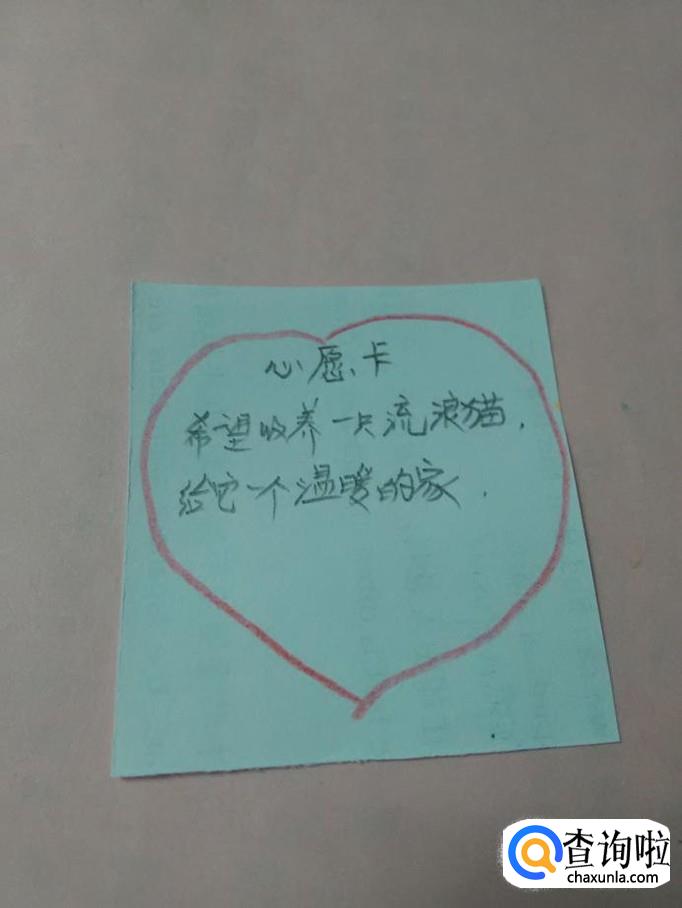 心愿卡
希望收养一只流浪猫，
给它个温暖的家.
查询啦
chaxunla.com